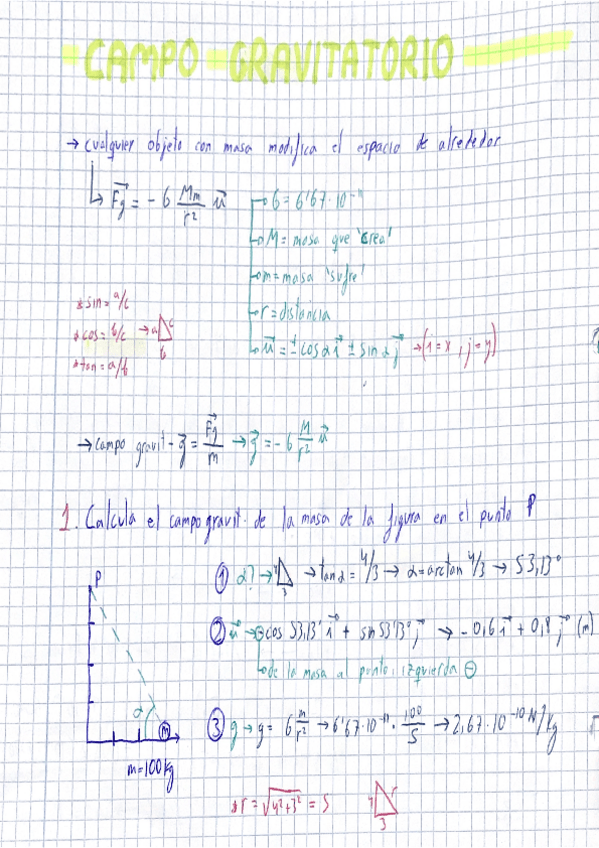 CAMPO GRAVITATORIO
→ cualquier objeto con masa modifica el espacio de alrededor
↳ F⃗g = - G Mm/r² u⃗
G = 6'67·10⁻¹¹
M = masa que 'crea'
m = masa 'sufre'
r = distancia
u⃗ = ± cos α i⃗ ± sin α j⃗ → (i = x, j = y)
* sin = a/c
* cos = b/c → a c b
* tan = a/b
→ campo gravit - g⃗ = F⃗g/m → g⃗ = - G M/r² u⃗
1. Calcula el campo gravit. de la masa de la figura en el punto P
P
α
m
m=100kg
① α? → 4 3 → tan α = 4/3 → α = arctan 4/3 → 53,13°
② u⃗ → ⊖cos 53,13° i⃗ + sin 53'13° j⃗ → - 0,6 i⃗ + 0,8 j⃗ (m)
↳ de la masa al punto, izquierda ⊖
③ g → g = G m/r² → 6'67·10⁻¹¹ · 100/5 → 2,67·10⁻¹⁰ N/kg
* r = √4²+3² = 5 4 r 3